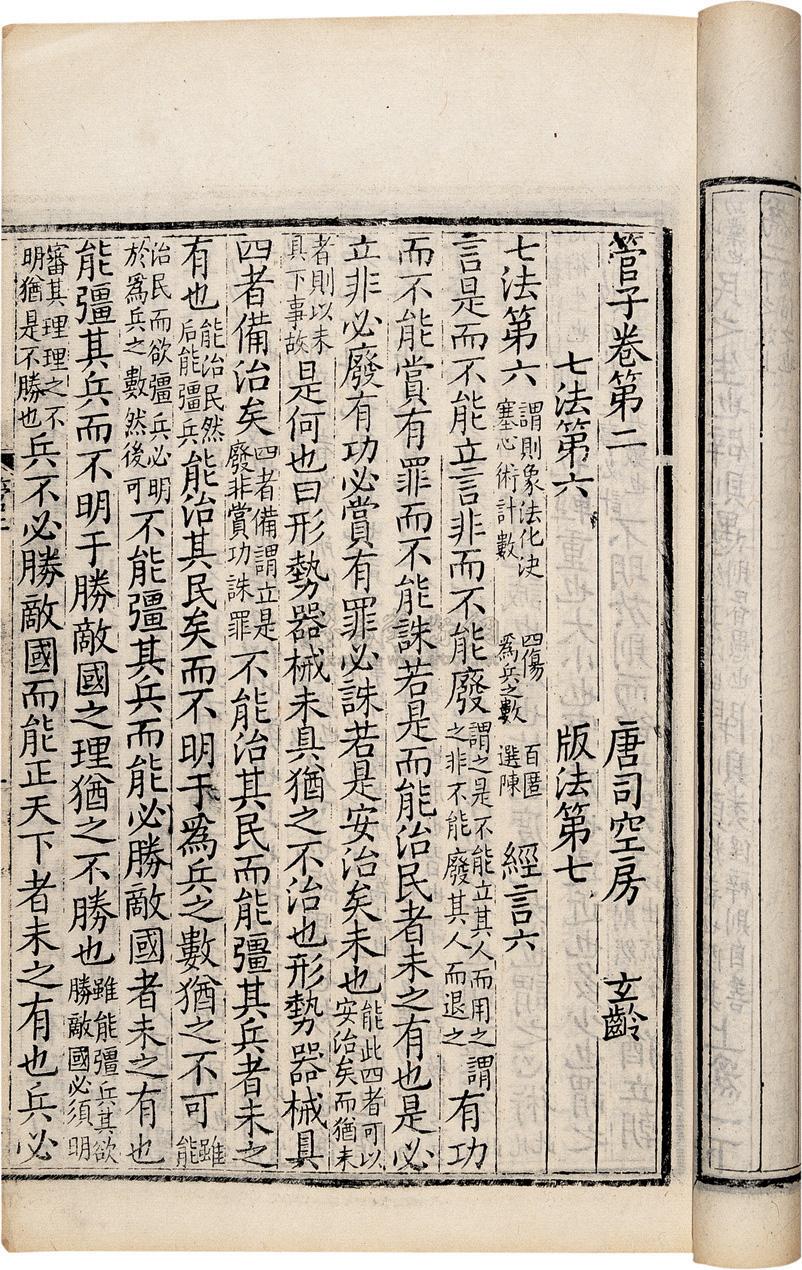 管子卷第二 唐司空房 玄齡
七法第六 版法第七
七法第六 謂則象法化決塞心術計數 四傷 爲兵之數 百匿 選陳 經言六
言是而不能立言非而不能廢 謂之是不能立其人而用之謂之非不能廢其人而退之 有功
而不能賞有罪而不能誅若是而能治民者未之有也是必
立非必廢有功必賞有罪必誅若是安治矣未也 能此四者可以安治矣而猶未
者則以未具下事故 是何也曰形勢器械未具猶之不治也形勢器械具
四者備治矣 四者備謂立是廢非賞功誅罪 不能治其民而能彊其兵者未之
有也 能治民然后能彊兵 能治其民矣而不明于爲兵之數猶之不可 雖能
治民而欲彊兵必明於爲兵之數然後可 不能彊其兵而能必勝敵國者未之有也
能彊其兵而不明于勝敵國之理猶之不勝也 雖能彊兵其欲勝敵國必須明
審其理理之不明猶是不勝也 兵不必勝敵國而能正天下者未之有也兵必